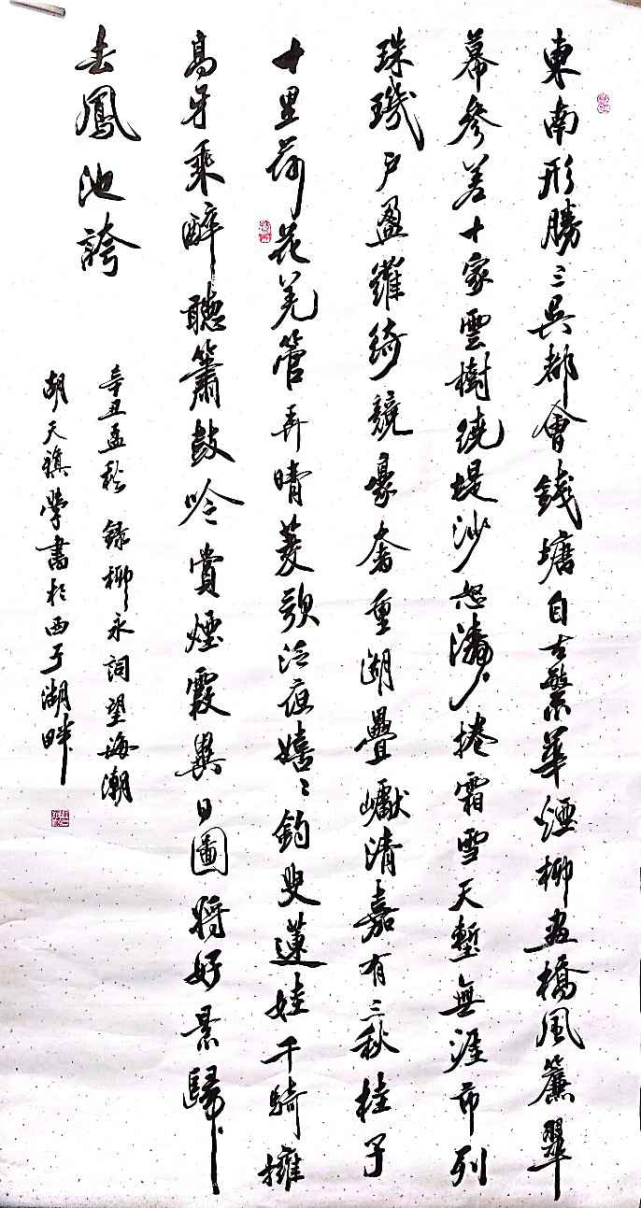 東南形勝三吳都會錢塘自古繁華煙柳畫橋風簾翠
幕參差十家雲樹繞堤沙怒濤捲霜雪天塹無涯市列
珠璣戶盈羅綺競豪奢重湖疊巘清嘉有三秋桂子
十里荷花羌管弄晴菱歌泛夜嬉〻釣叟蓮娃千騎擁
高牙乘醉聽簫鼓吟賞煙霞異日圖將好景歸
去鳳池誇
辛丑孟秋 錄柳永詞望海潮
胡天旗學書於西子湖畔